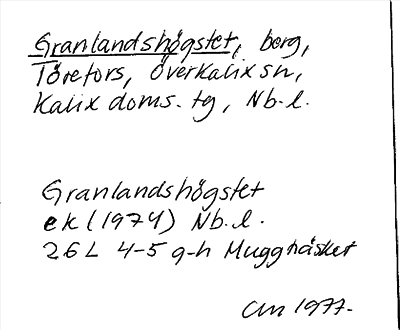 Granlandshögstet, berg,
Törefors, Överkalix sn,
Kalix doms. tg, Nb. l.
Granlandshögstet
ek (1974) Nb. l.
26 L 4-5 g-h Muggträsket
CM 1977.